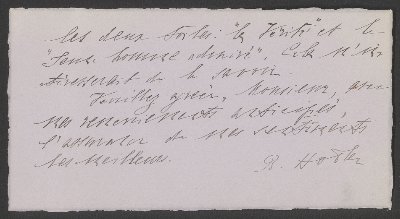 les deux toiles: "la Vérité" et le
"Jeune homme admiré". Cela m'in-
téresserait de le savoir.
Veuillez agréer, Monsieur, avec
mes remerciements anticipés,
l'assurance de mes sentiments
les meilleurs.
H